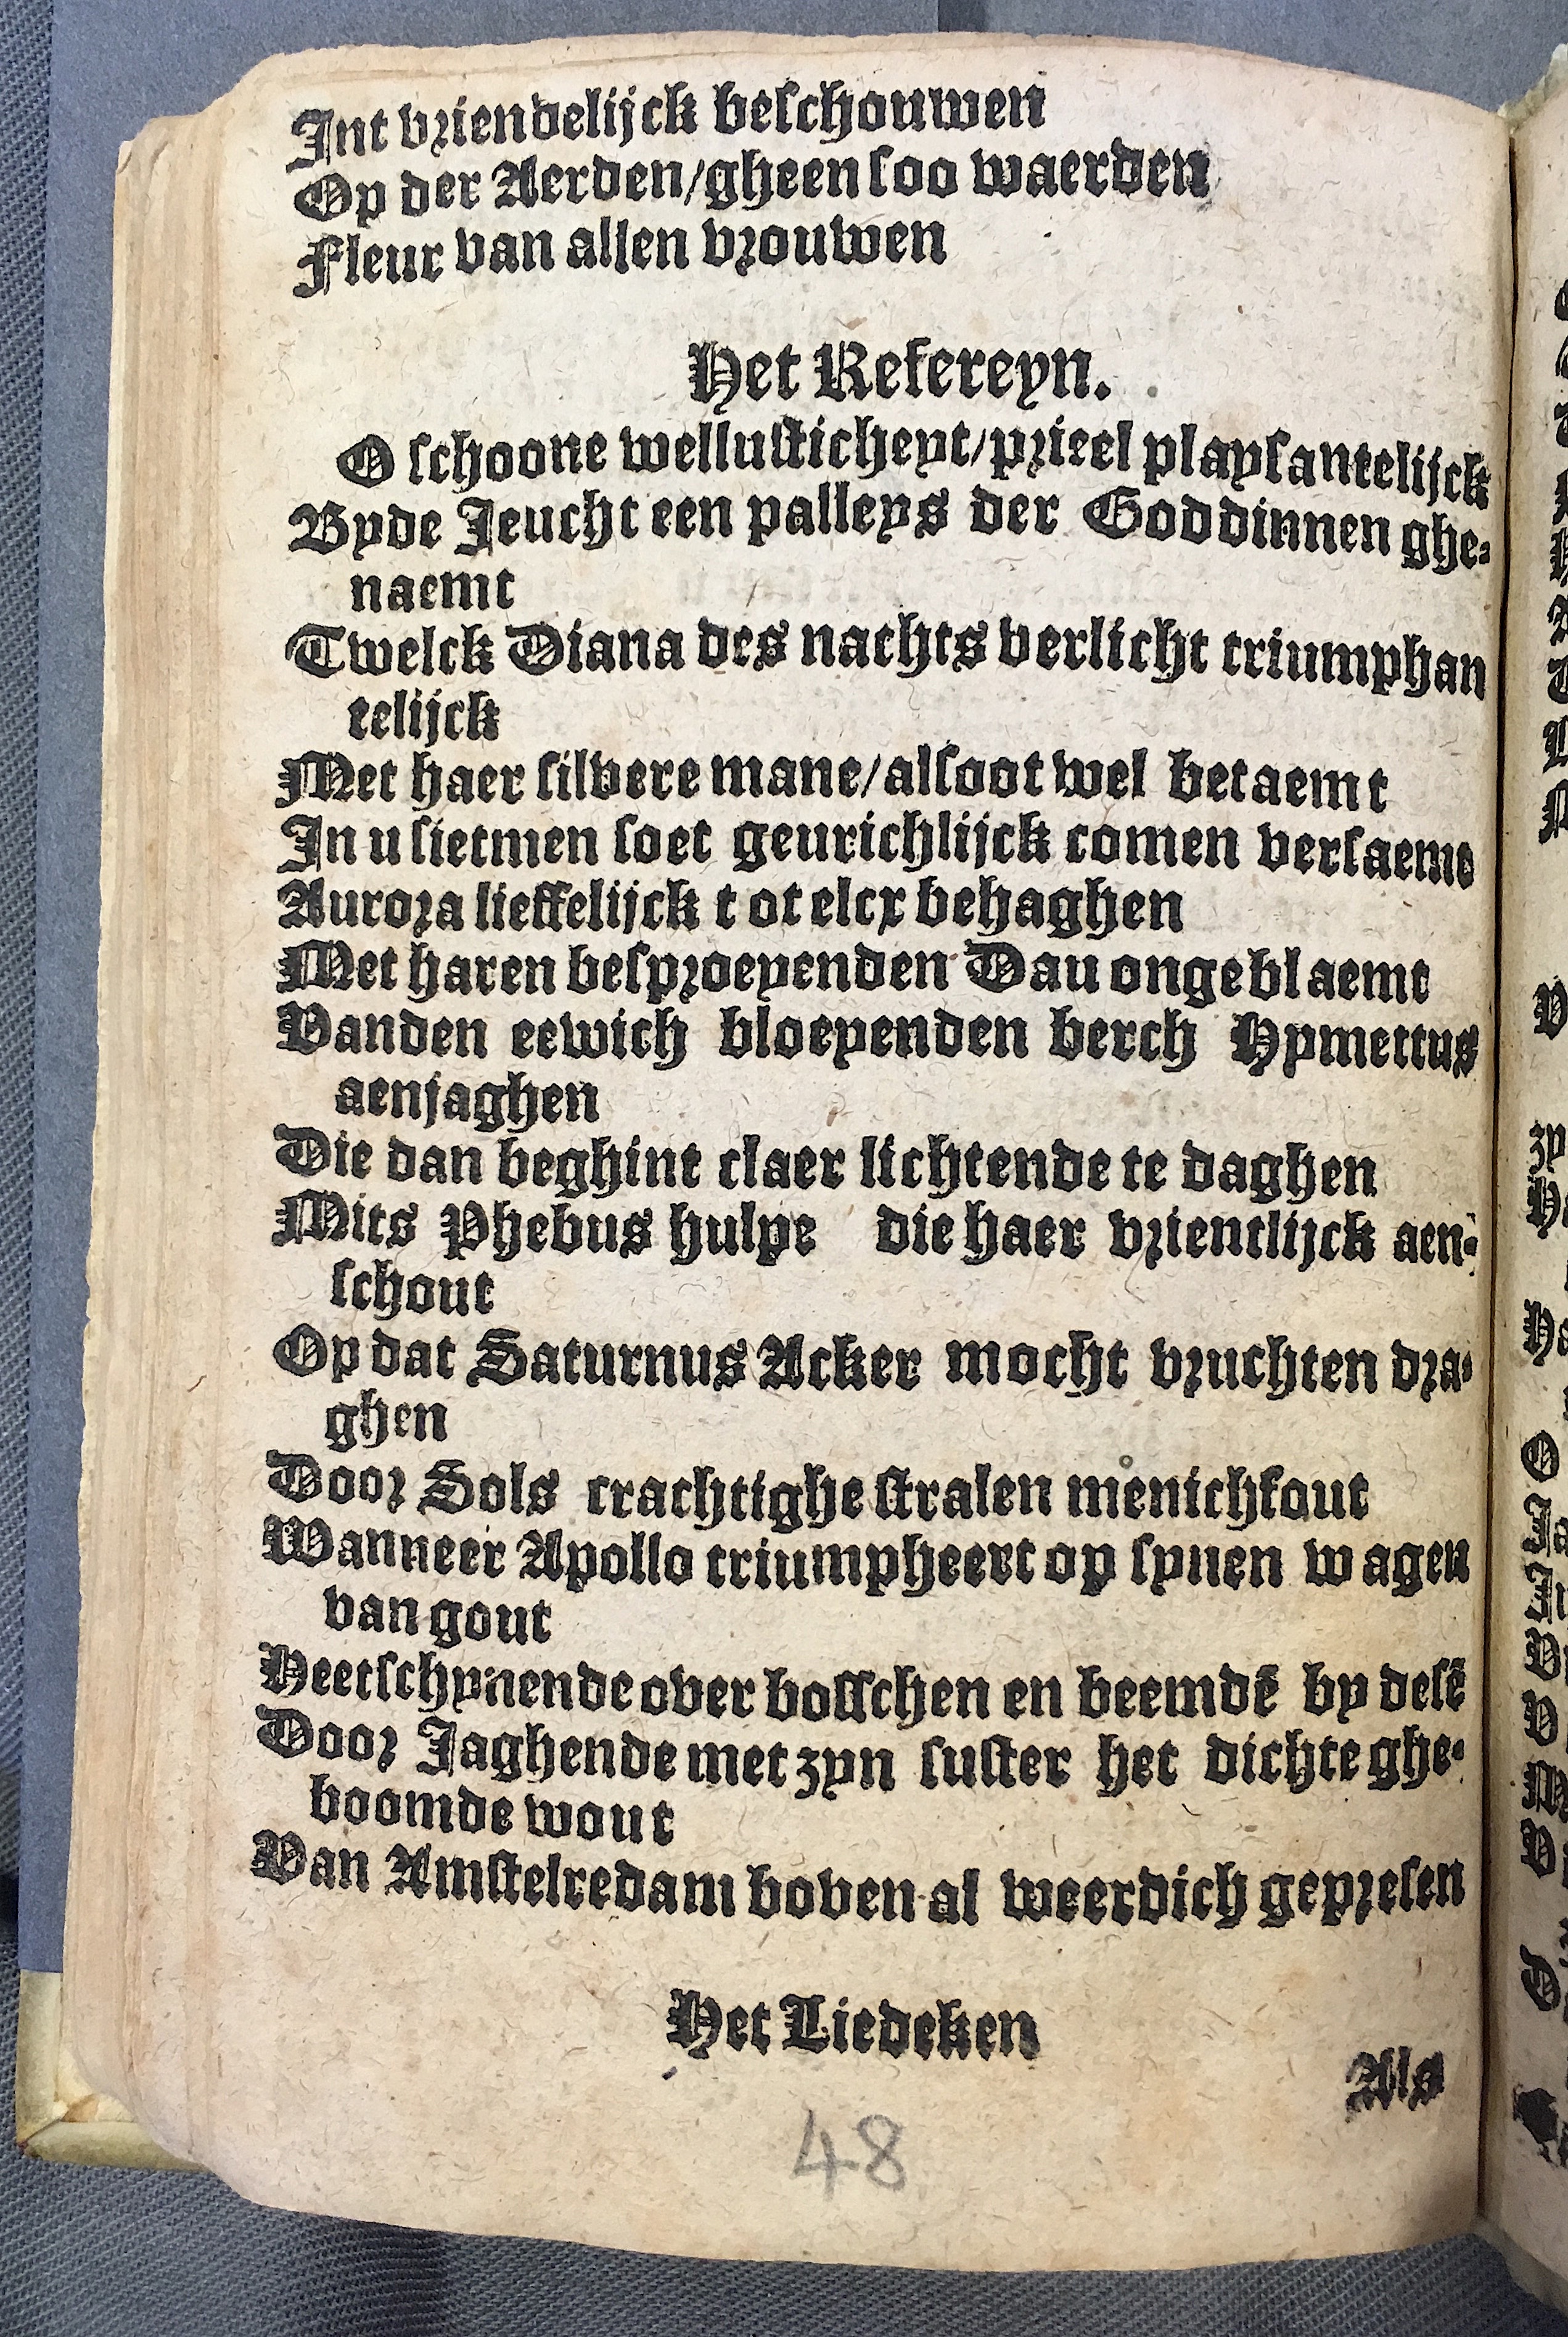 Int vriendelijck beschouwen
Op der Aerden/gheen soo waerden
Fleur van allen vrouwen
Het Refereyn.
O schoone wellusticheyt/prieel playsantelijck
Byde Jeucht een palleys der Goddinnen ghe-
naemt
Twelck Diana des nachts verlicht triumphan
telijck
Met haer silvere mane/alsoot wel betaemt
In u sietmen soet geurichlijck comen versaemt
Aurora lieffelijck t ot elcx behaghen
Met haren besproeyenden Dau ongeblaemt
Vanden eewich bloeyenden berch Hymettus
aenjaghen
Die dan beghint claer lichtende te daghen
Mits Phebus hulpe die haer vrientlijck aen-
schout
Op dat Saturnus Acker mocht vruchten dra-
ghen
Door Sols crachtighe stralen menichfout
Wanneer Apollo triumpheert op synen wagen
van gout
Heetschynende over bosschen en beemdē by desē
Door Jaghende met zyn suster het dichte ghe-
boomde wout
Van Amstelredam boven al weerdich gepresen
Het Liedeken
Als
48